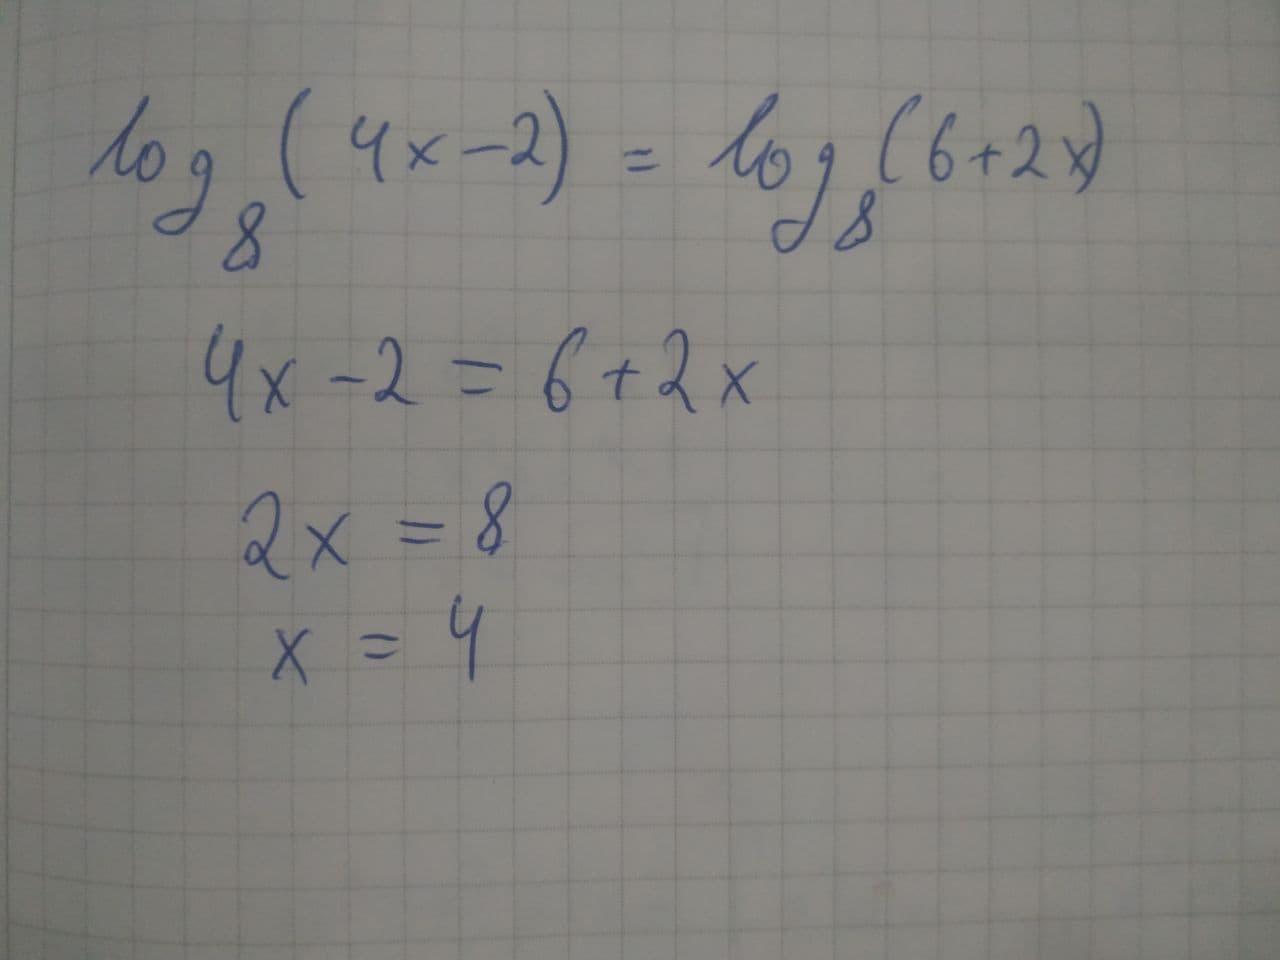 log₈(4x-2) = log₈(6+2x)
4x-2 = 6+2x
2x = 8
x = 4